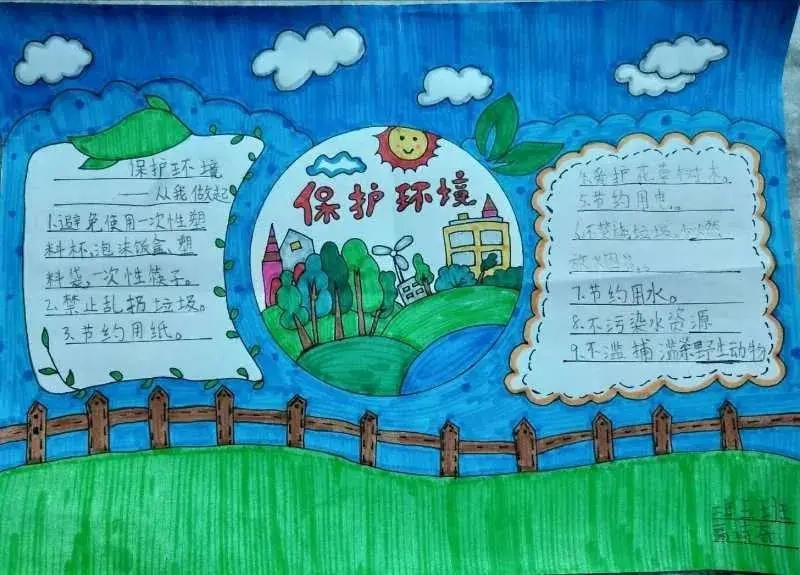 保护环境
——从我做起
1.避免使用一次性塑
料杯,泡沫饭盒,塑
料袋,一次性筷子。
2.禁止乱扔垃圾。
3.节约用纸。
保护环境
4.爱护花草树木。
5.节约用电。
6.不焚烧垃圾,不燃
放
7.节约用水。
8.不污染水资源
9.不滥捕滥杀野生动物
班